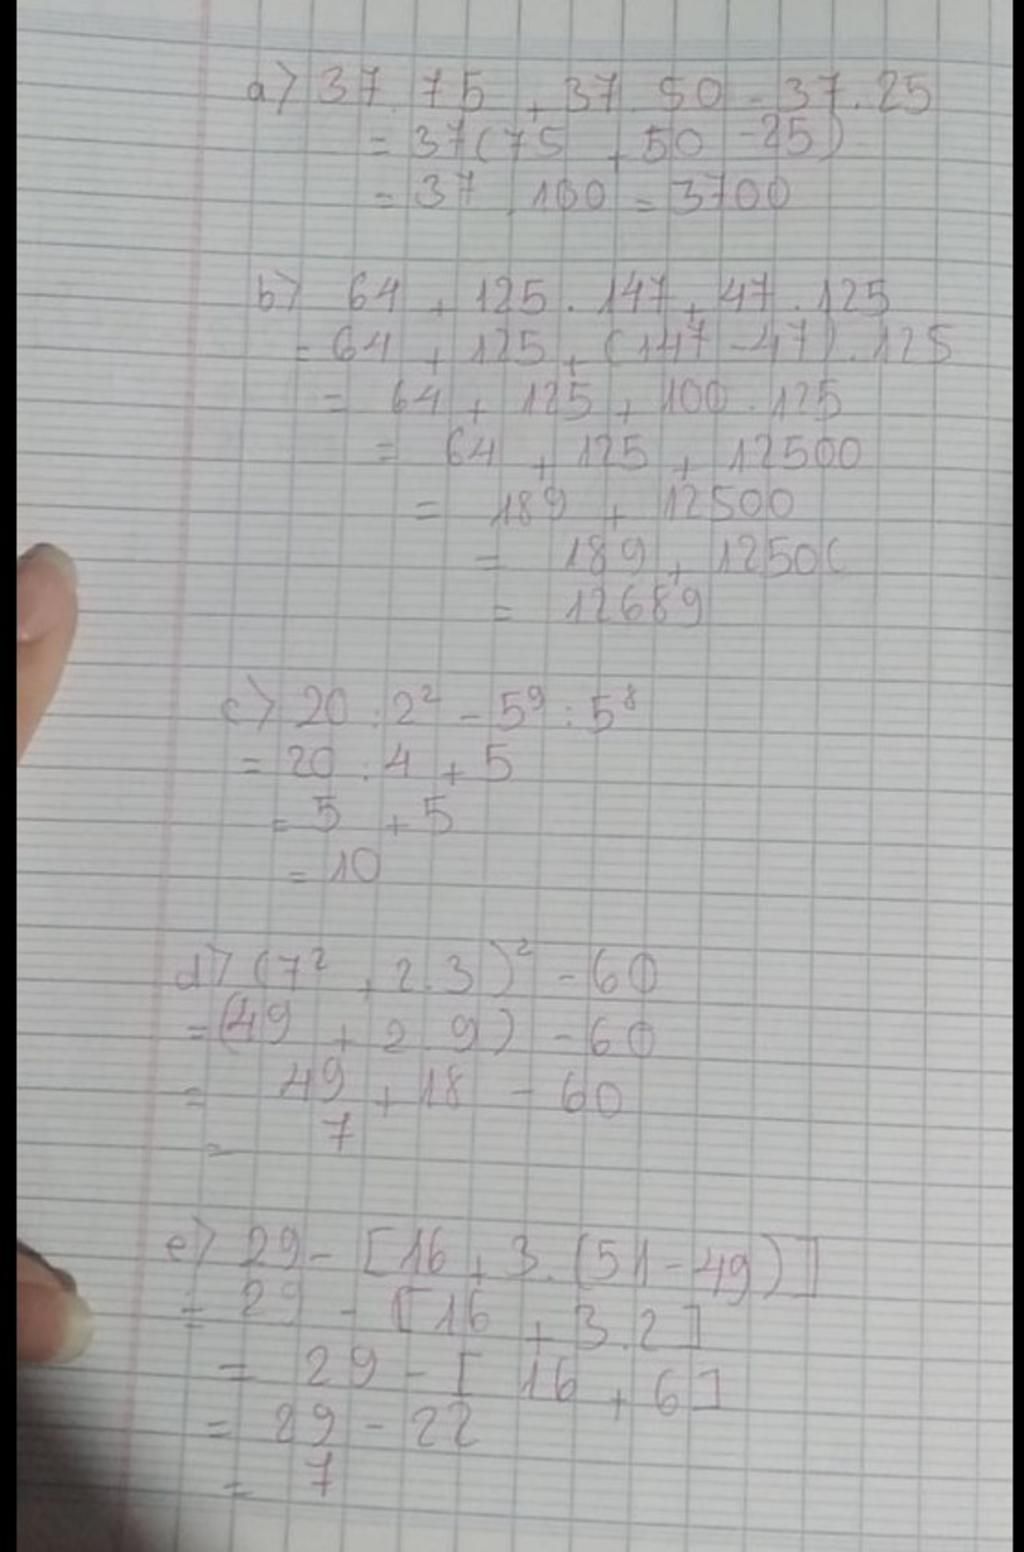 a) 37.75 + 37.50 - 37.25
= 37(75 + 50 - 25)
= 37.100 = 3700
b) 64 + 125.147 + 47.125
= 64 + 125 + (147 - 47).125
= 64 + 125 + 100.125
= 64 + 125 + 12500
= 189 + 12500
= 189 + 1250(
= 12689
c) 20 : 2² - 5⁹ : 5⁸
= 20 : 4 + 5
= 5 + 5
= 10
d) (7² + 2.3)² - 60
= (49 + 2.9) - 60
= 49 + 18 - 60
= 7
e) 29 - [16 + 3.(51 - 49)]
= 29 - [16 + 3.2]
= 29 - [16 + 6]
= 29 - 22
= 7